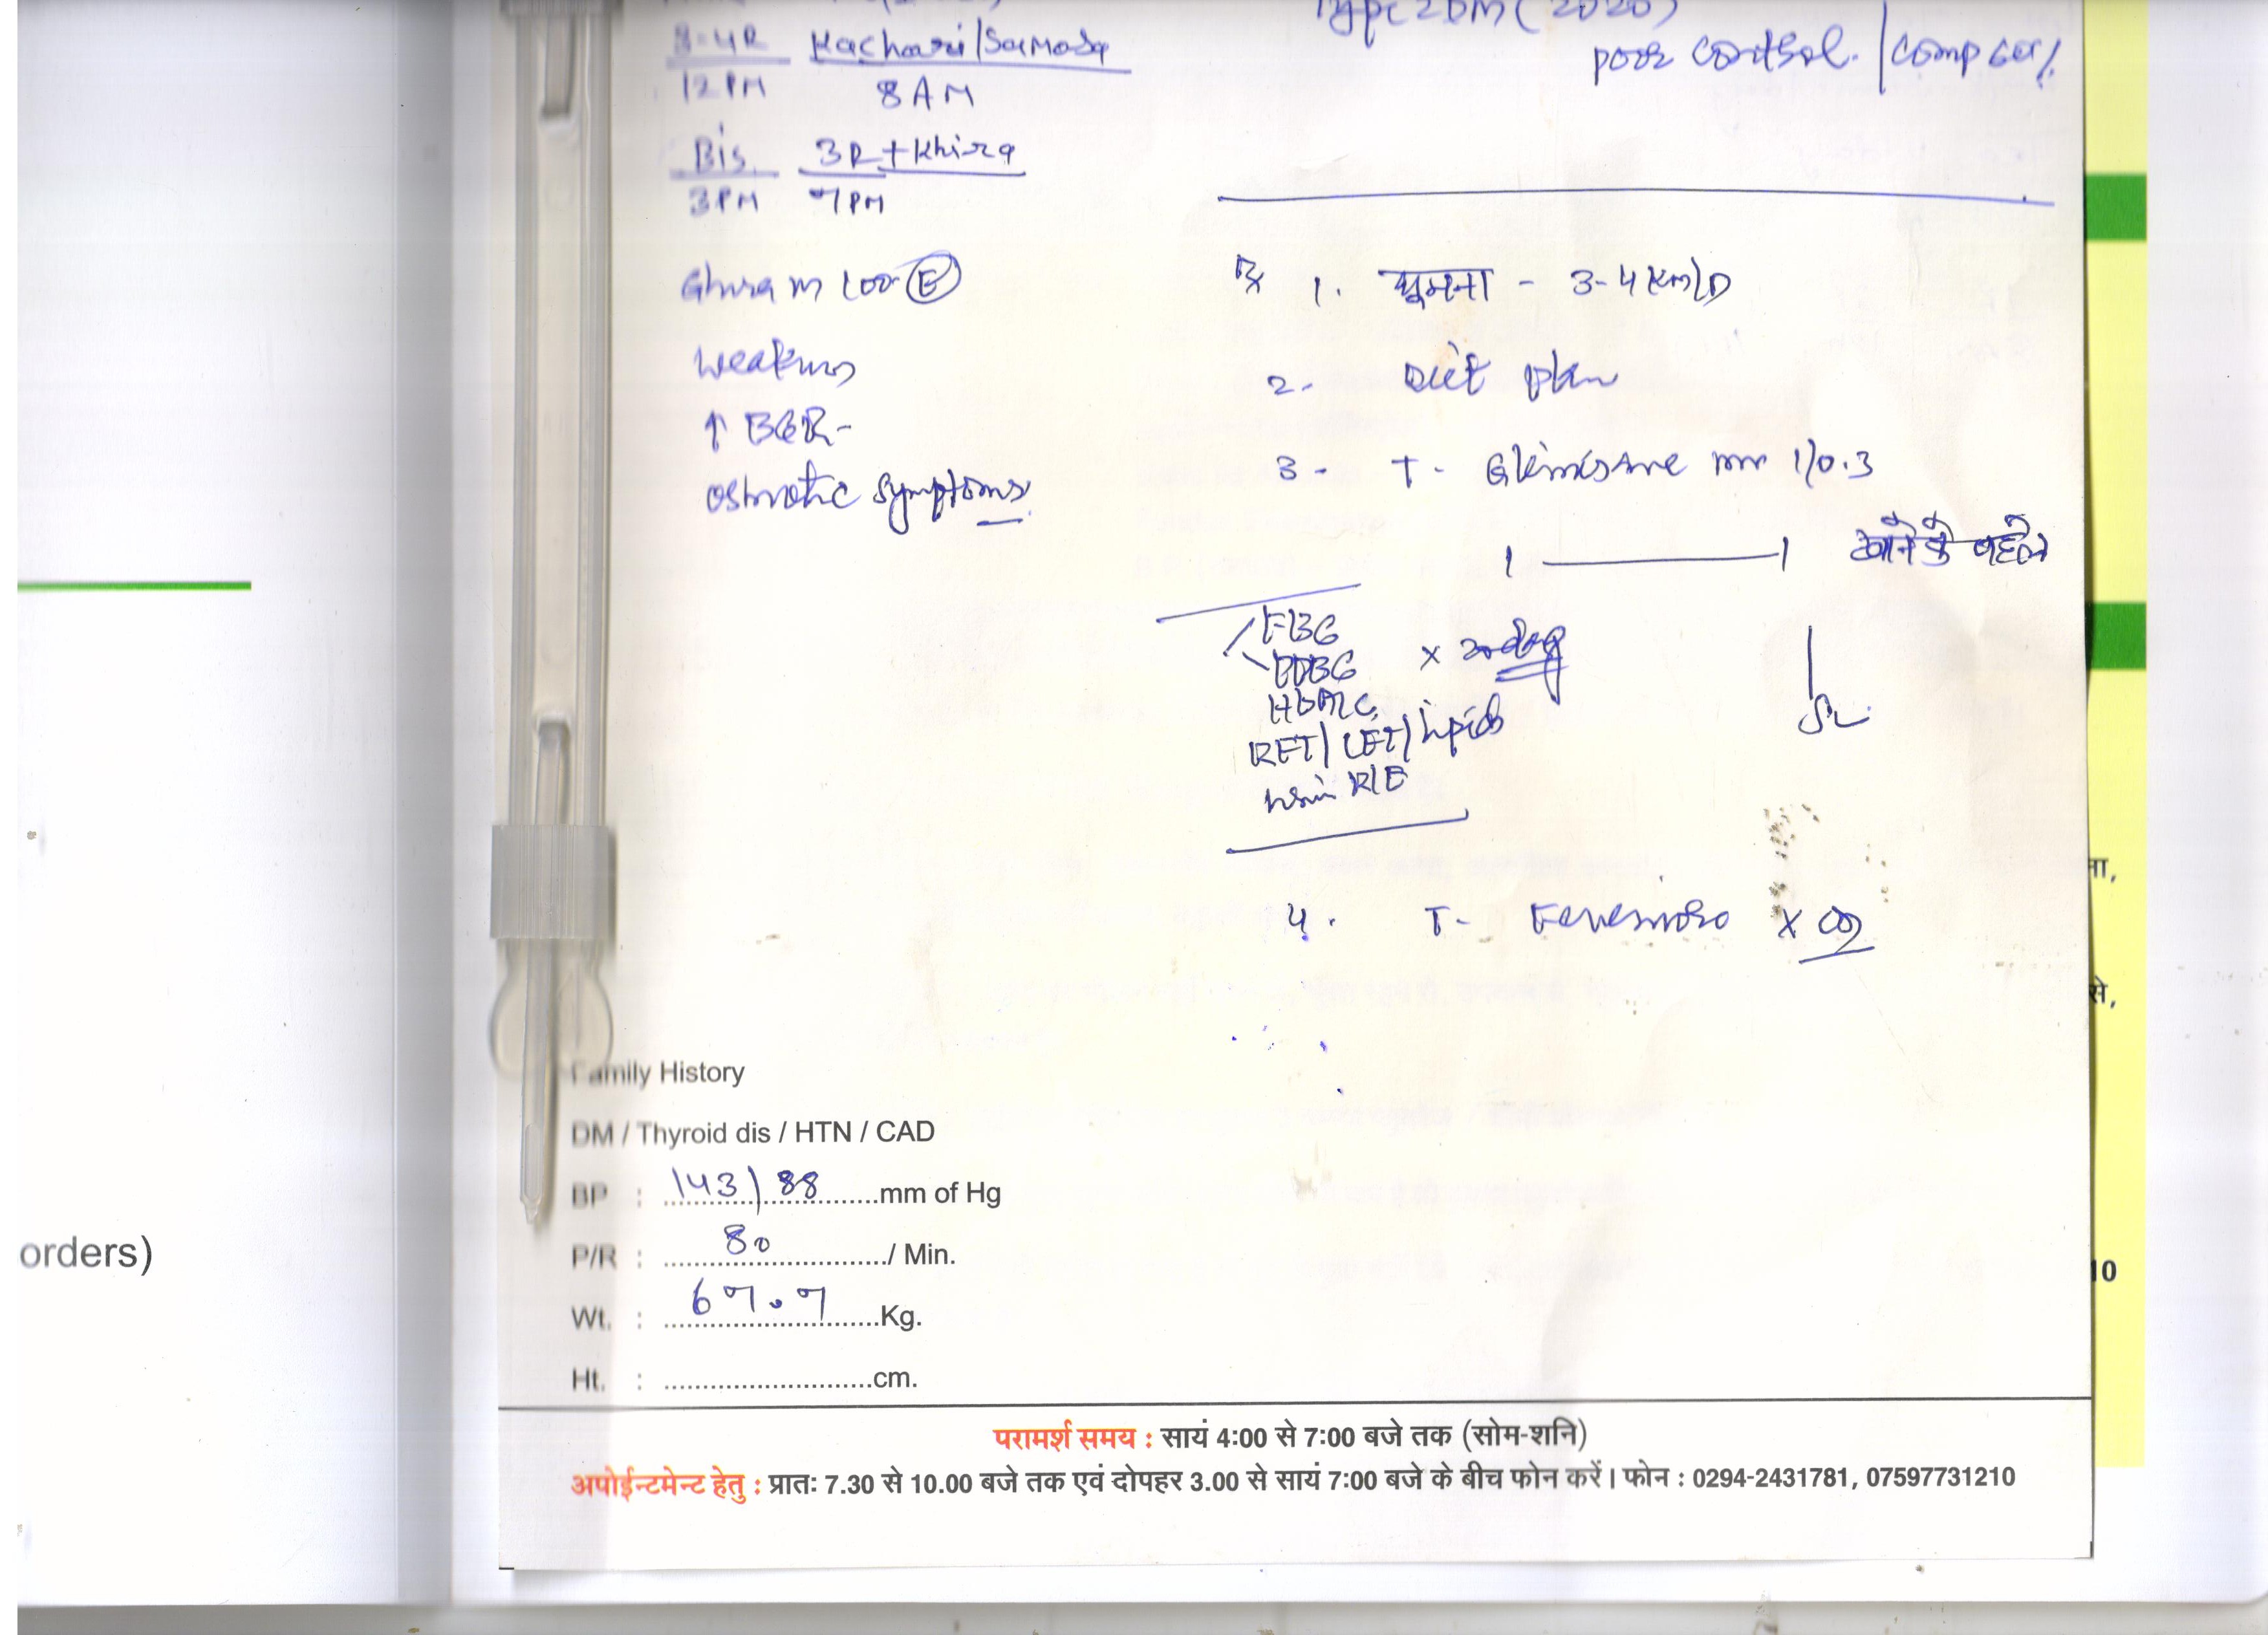 Type 2 DM (2020)
poor control. /
3-4R Kachori/Samosa
12 PM 8 AM
Bis. 3R + Khira
3 PM 7 PM
Ghuram 100 E
↑ BGR-
osmotic symptoms
Rx 1. घूमना - 3-4 Km/D
2. Diet plan
3 - T - 1/0.3
1 — 1 खाने के पहले
FBG
PPBG
HbA1C
RFT / LFT / lipids
R/E
4. T-
Family History
DM / Thyroid dis / HTN / CAD
BP : 143/88 mm of Hg
P/R : 80 / Min.
Wt. : 67.7 Kg.
Ht. : cm.
परामर्श समय : सायं 4:00 से 7:00 बजे तक (सोम-शनि)
अपोईन्टमेन्ट हेतु : प्रातः 7.30 से 10.00 बजे तक एवं दोपहर 3.00 से सायं 7:00 बजे के बीच फोन करें। फोन : 0294-2431781, 07597731210
orders)
ना,
से,
10